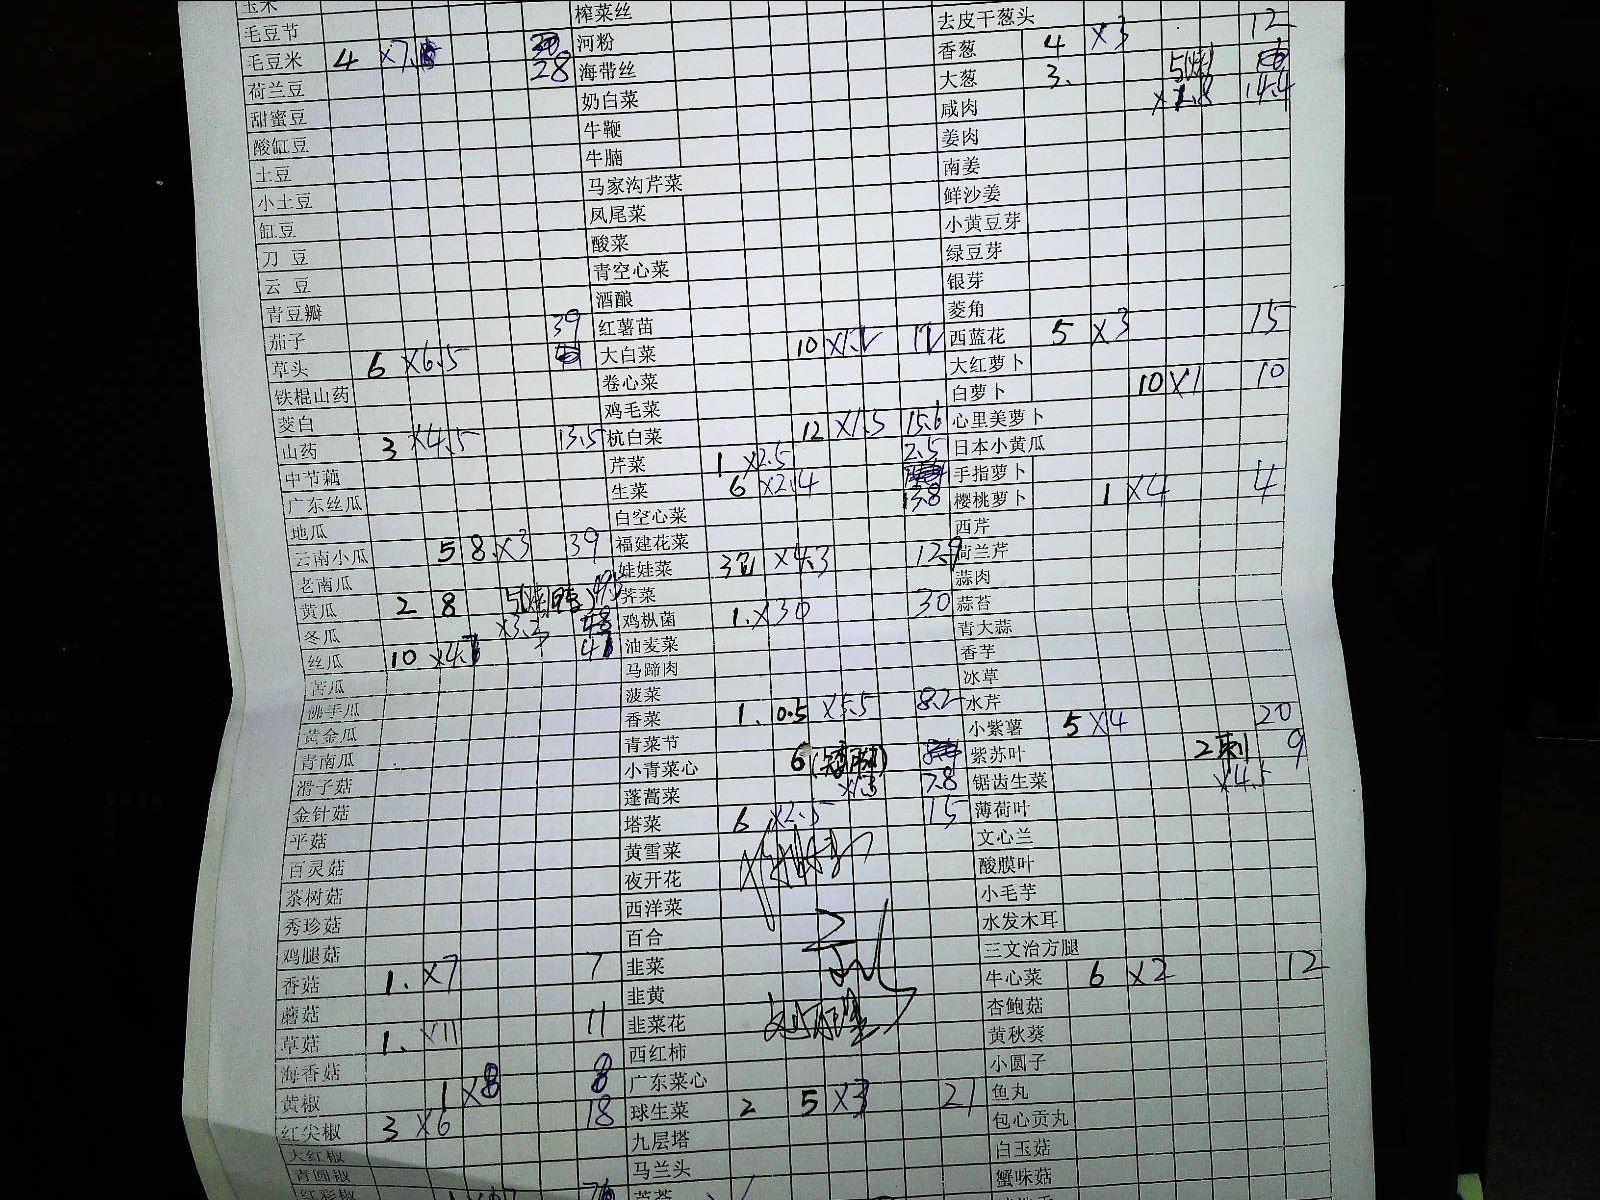 玉米
毛豆节
毛豆米 4 28
荷兰豆
甜蜜豆
酸缸豆
土豆
小土豆
缸豆
刀 豆
云 豆
青豆瓣
茄子 39
草头 6 ×6.5
铁棍山药
茭白
山药 3 ×4.5 13.5
中节藕
广东丝瓜
地瓜
云南小瓜 5 8 ×3 39
老南瓜
黄瓜 2 8
冬瓜
丝瓜 10
苦瓜
佛手瓜
黄金瓜
青南瓜
滑子菇
金针菇
平菇
百灵菇
茶树菇
秀珍菇
鸡腿菇
香菇 1. ×7 7
蘑菇
草菇 1. ×11 11
海香菇
黄椒 1 ×8 8
红尖椒 3 ×6 18
大红椒
青圆椒
红彩椒
榨菜丝
河粉
海带丝
奶白菜
牛鞭
牛腩
马家沟芹菜
凤尾菜
酸菜
青空心菜
酒酿
红薯苗
大白菜 10
卷心菜
鸡毛菜
杭白菜 12 ×1.5 15.6
芹菜 1 ×2.5 2.5
生菜 6 ×2.4
白空心菜 13.8
福建花菜
娃娃菜 3 ×4.3 12.9
荠菜
鸡枞菌 1. ×30 30
油麦菜
马蹄肉
菠菜
香菜 1. 0.5 ×5.5 8.2
青菜节
小青菜心 6
蓬蒿菜 ×1.3 7.8
塔菜 6 ×2.5 15
黄雪菜
夜开花
西洋菜
百合
韭菜
韭黄
韭菜花
西红柿
广东菜心
球生菜 2 5 ×3 21
九层塔
马兰头
去皮干葱头
香葱 4 ×3 12
大葱 3.
咸肉 ×1.8 14.4
姜肉
南姜
鲜沙姜
小黄豆芽
绿豆芽
银芽
菱角
西蓝花 5 ×3 15
大红萝卜
白萝卜 10 ×1 10
心里美萝卜
日本小黄瓜
手指萝卜
樱桃萝卜 1 ×4 4
西芹
荷兰芹
蒜肉
蒜苔
青大蒜
香芋
冰草
水芹
小紫薯 5 ×4 20
紫苏叶 2 9
锯齿生菜 ×4.5
薄荷叶
文心兰
酸膜叶
小毛芋
水发木耳
三文治方腿
牛心菜 6 ×2 12
杏鲍菇
黄秋葵
小圆子
鱼丸
包心贡丸
白玉菇
蟹味菇